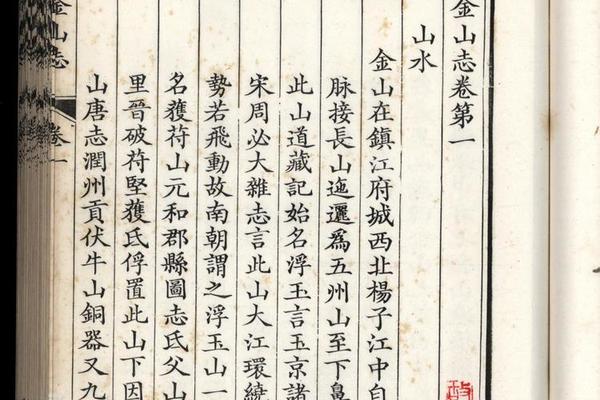 金山志卷第一
山水
金山在鎮江府城西北楊子江中自
脉接長山迤邐爲五州山至下鼻
此山道藏記始名浮玉言玉京諸
宋周必大雜志言此山大江環繞
勢若飛動故南朝謂之浮玉山一
名獲苻山元和郡縣圖志氐父山
里晉破苻堅獲氐俘置此山下因
山唐志潤州貢伏牛山銅器又九
金山志
卷一